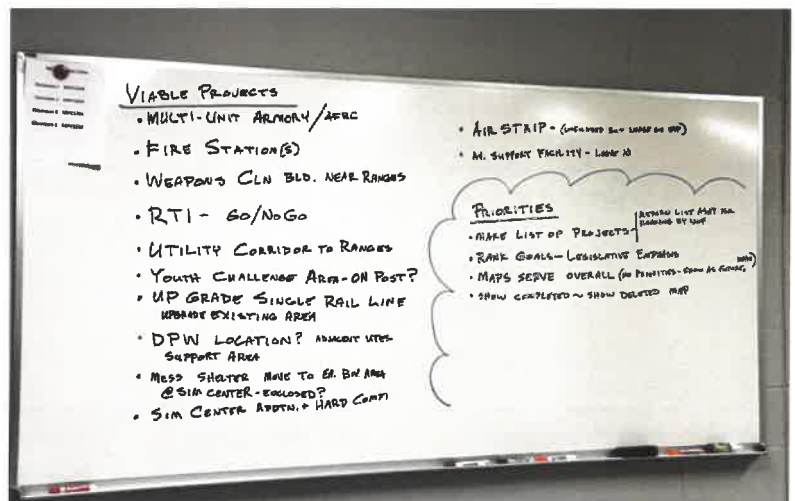 VIABLE PROJECTS
• MULTI-UNIT ARMORY/AFRC
• FIRE STATION(S)
• WEAPONS CLN BLD. NEAR RANGES
• RTI - GO/NOGO
• UTILITY CORRIDOR TO RANGES
• YOUTH CHALLENGE AREA-ON POST?
• UP GRADE SINGLE RAIL LINE
UPGRADE EXISTING AREA
• DPW LOCATION? ADJACENT UTES
SUPPORT AREA
• MESS SHELTER MOVE TO EA. BN. AREA
@ SIM CENTER-ENCLOSED?
• SIM CENTER ADDTN. + HARD
• AIR STRIP -
• SUPPORT FACILITY -
PRIORITIES
• MAKE LIST OF PROJECTS-
RETURN LIST
RANKING BY
• RANK GOALS-LEGISLATIVE EMPHASIS
• MAPS SERVE OVERALL (NO PRIORITIES-SHOW AS FUTURE
• SHOW COMPLETED ~ SHOW DELETED MAP